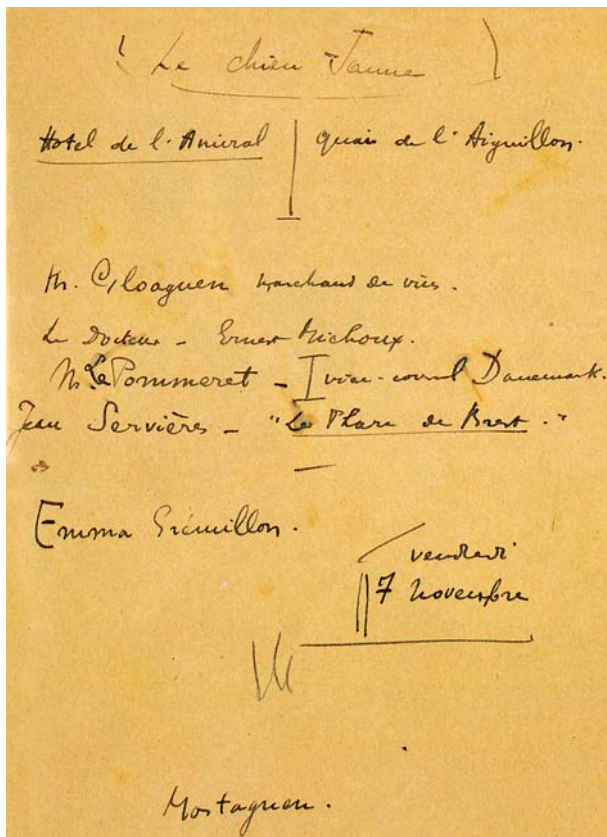 ( Le chien Jaune )
Hotel de l'Amiral | quai de l'Aiguillon.
M. Gloaguen marchand de vins.
Le Docteur - Ernest Michoux.
M. Le Pommeret - vice-consul Danemark.
Jean Servières - "Le Phare de Brest."
Emma Grémillon.
vendredi
7 novembre
Mostaguen.